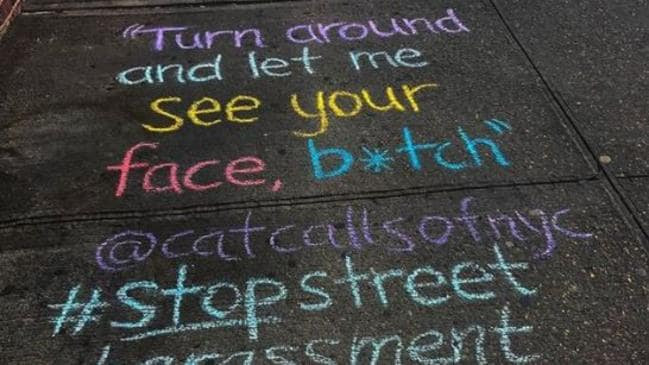 "Turn around
and let me
see your
face, b*tch"
@catcallsofnyc
#Stopstreet
harassment